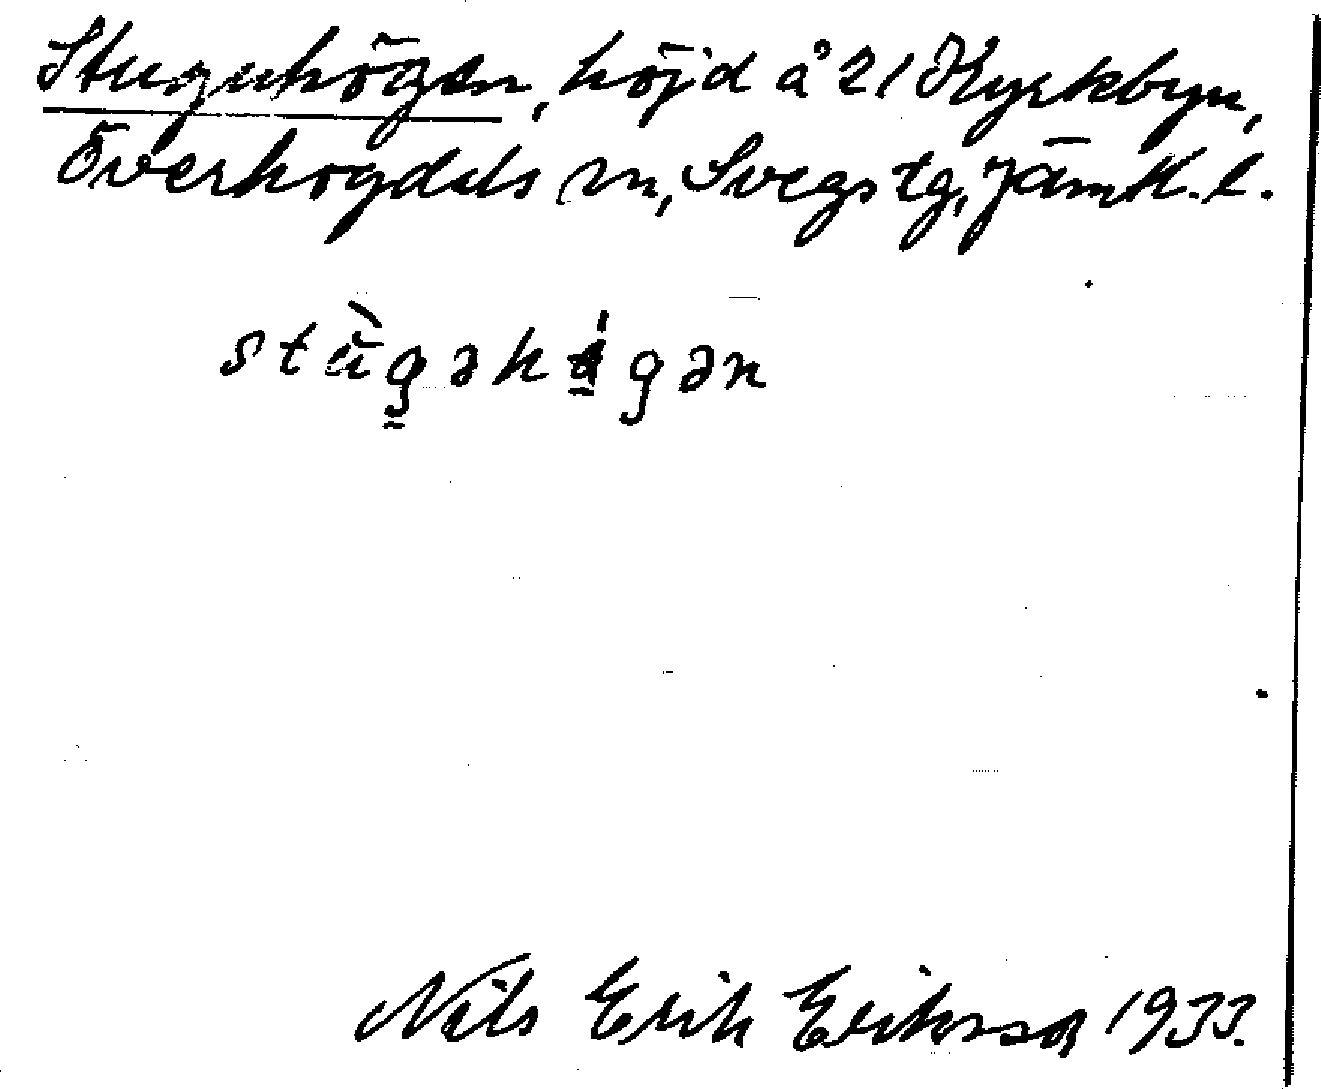 Stuguhögen, höjd å 21 Kyrkbyn,
Överhogdals sn, Svegs tg, Jämtl. l.
stùgəhȯgən
Nils Erik Eriksson 1933.